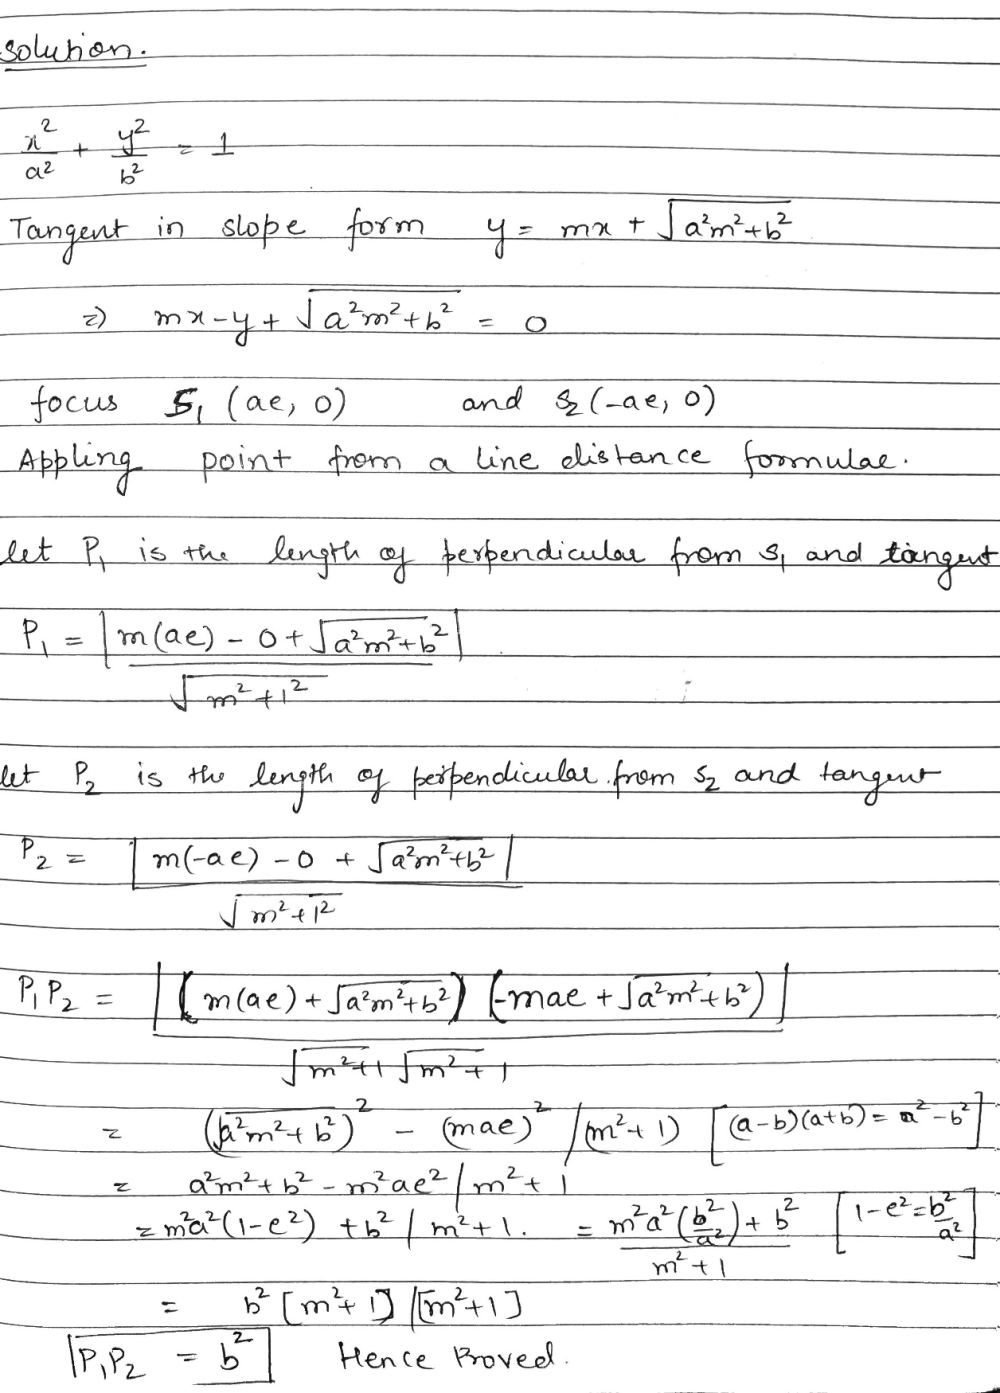 Solution.
x²/a² + y²/b² = 1
Tangent in slope form y = mx + √(a²m²+b²)
⇒ mx-y + √(a²m²+b²) = 0
focus S₁ (ae, 0) and S₂ (-ae, 0)
Appling point from a line distance formulae.
let P₁ is the length of perpendicular from S₁ and tangent
P₁ = |m(ae) - 0 + √(a²m²+b²)| / √(m²+1²)
let P₂ is the length of perpendicular from S₂ and tangent
P₂ = |m(-ae) - 0 + √(a²m²+b²)| / √(m²+1²)
P₁P₂ = |(m(ae) + √(a²m²+b²)) (-mae + √(a²m²+b²))| / √m²+1 √m²+1
= (√(a²m²+b²))² - (mae)² / (m²+1) [(a-b)(a+b) = a²-b²]
= a²m²+b² - m²ae² / m²+1
= m²a²(1-e²) + b² / m²+1. = m²a²(b²/a²) + b² / m²+1 [1-e² = b²/a²]
= b² [m²+1] / [m²+1]
P₁P₂ = b² Hence Proved.